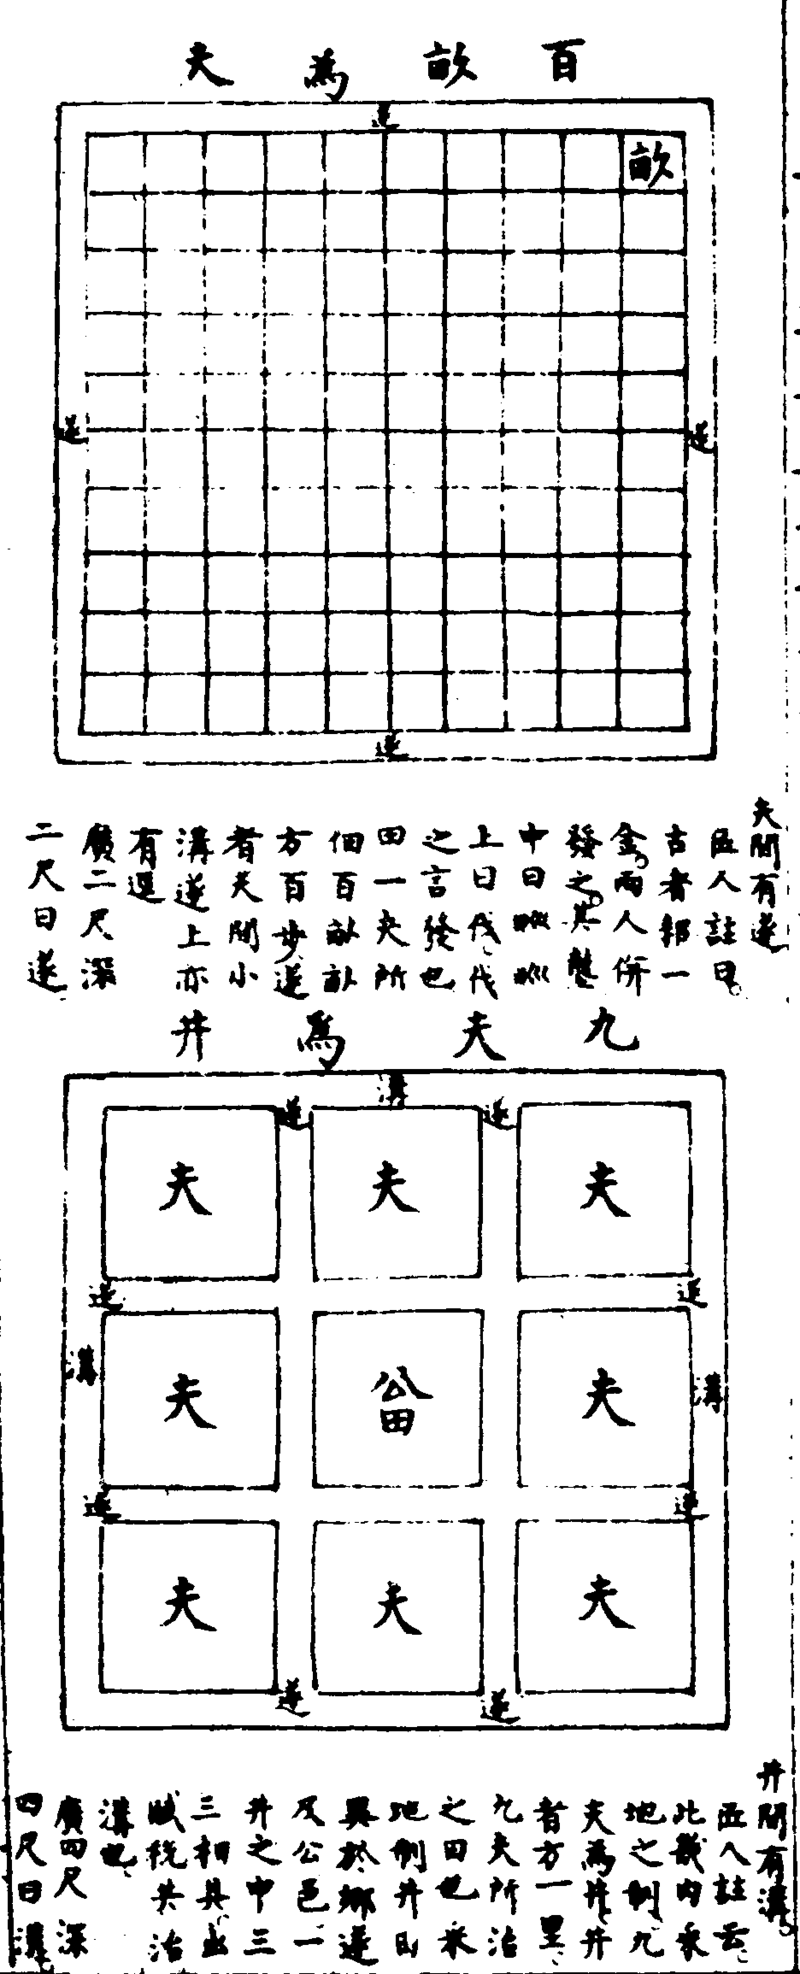 百畝爲夫
遂
畝
遂
遂
遂
夫間有遂
匠人註曰
古者耜一
金兩人併
發之其壟
中曰畎畎
上曰伐伐
之言發也
田一夫所
佃百畝畝
方百步遂
者夫間小
溝遂上亦
有逕
廣二尺深
二尺曰遂
九夫爲井
溝
遂 遂
夫 夫 夫
遂 遂
溝 溝
夫 公田 夫
遂 遂
夫 夫 夫
遂 遂
井間有溝
匠人註云
此畿內采
地之制九
夫爲井井
者方一里
九夫所治
之田也采
地制井田
異於鄉遂
及公邑一
井之中三
三相具出
賦稅共治
溝也
廣四尺深
四尺曰溝